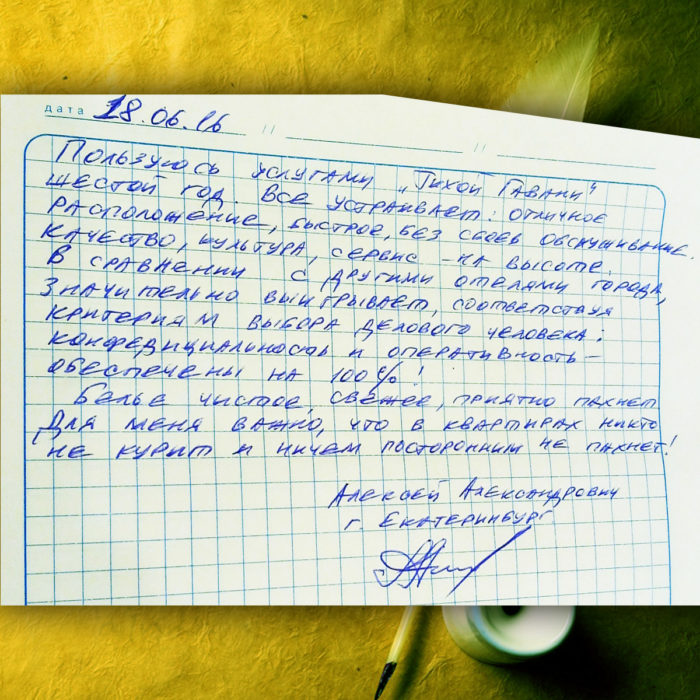 дата 18.06.16 // //
Пользуюсь услугами „Тихой Гавани“
шестой год. Все устраивает: отличное
расположение, быстрое, без сбоев обслуживание.
Качество, культура, сервис – на высоте.
В сравнении с другими отелями города,
значительно выигрывает, соответствуя
критериям выбора делового человека:
конфедициальность и оперативность –
обеспечены на 100%!
Белье чистое, свежее, приятно пахнет
Для меня важно, что в квартирах никто
не курит и ничем посторонним не пахнет!
Алексей Александрович
г. Екатеринбург